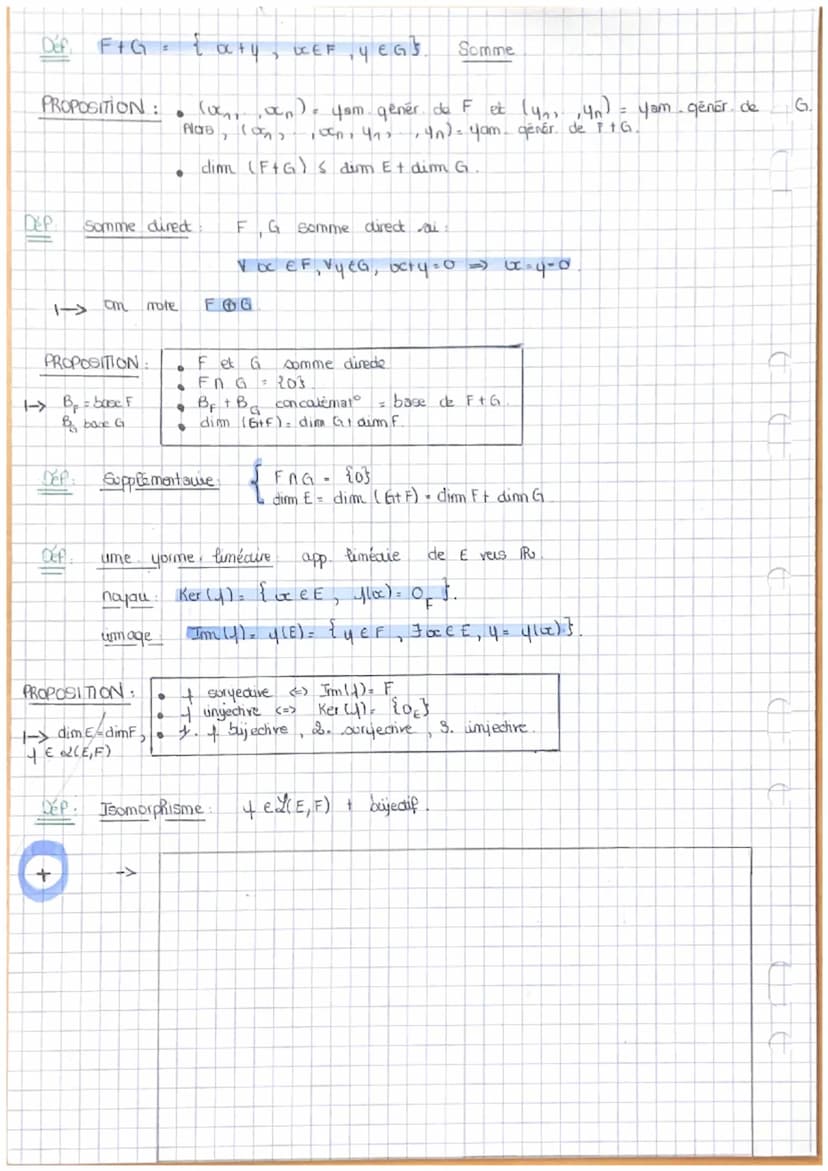 Déf. F+G = { x+y, x∈F, y∈G}. Somme
PROPOSITION : • (x₁, ,xₙ) = fam. génér. de F et (y₁, ,yₙ) = fam. génér. de G.
Alors, (x₁, .., xₙ, y₁, , yₙ) = fam. génér. de F+G.
• dim (F+G) ≤ dim E + dim G.
Déf. Somme direct : F, G somme direct si :
∀ x ∈ F, ∀y∈G, x+y=0 => x=y=0.
↦ on note F ⊕ G
PROPOSITION : • F et G somme directe
• F ∩ G = {0}.
↦ B_F = base F • B_F + B_G concaténat° = base de F+G.
B_G base G • dim (G+F) = dim G + dim F.
Déf. Supplémentaire { F∩G = {0}
dim E = dim (G+F) = dim F + dim G
Déf. une forme linéaire app. linéaie de E vers ℝ.
noyau : Ker(f) = { x∈E, f(x) = 0_F }.
image : Im(f) = f(E) = { y∈F, ∃x∈E, y = f(x).}.
PROPOSITION : • f surjective <=> Im(f) = F
• f injective <=> Ker(f) = {0_E}
↦ dim E = dim F, • 1. f bijective, 2. surjective, 3. injective.
f ∈ L(E,F)
Déf. Isomorphisme : f ∈ L(E,F) + bijectif.
+ ->